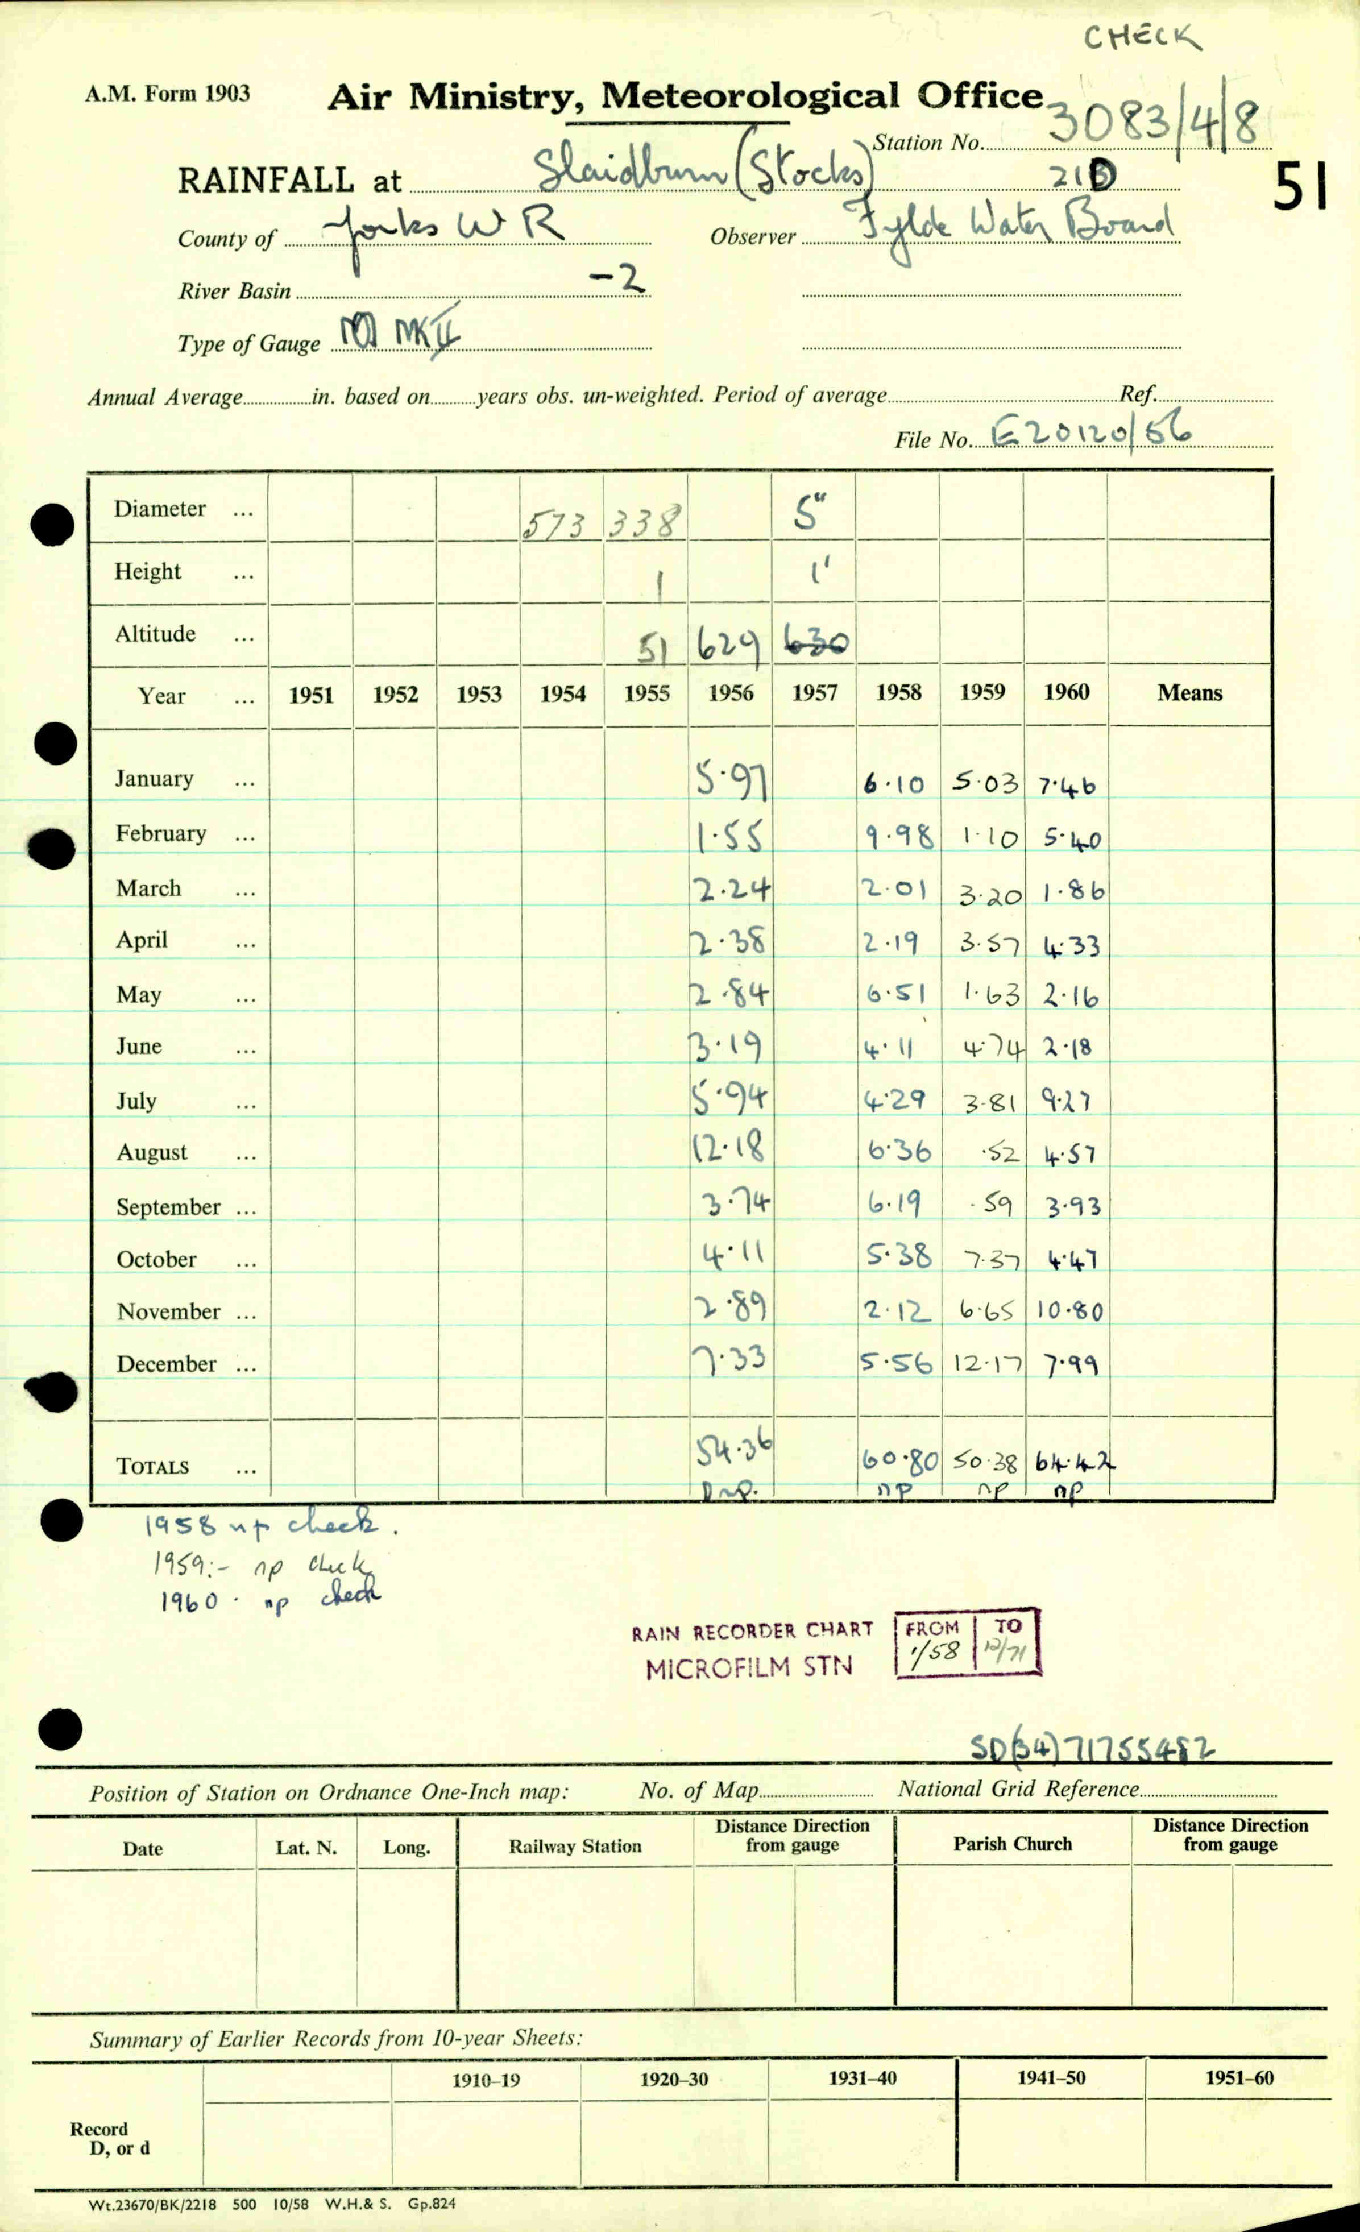 CHECK
A.M. Form 1903
Air Ministry, Meteorological Office
Station No. 3083/4/8
RAINFALL at Slaidburn (Stocks) 21D
51
County of Yorks W R Observer Fylde Water Board
River Basin -2
Type of Gauge MKII
Annual Average in. based on years obs. un-weighted. Period of average Ref.
File No. E20120/56
Diameter ... 573 338 5"
Height ... 1 1'
Altitude ... 51 629 630
Year ... 1951 1952 1953 1954 1955 1956 1957 1958 1959 1960 Means
January ... 5.97 6.10 5.03 7.46
February ... 1.55 9.98 1.10 5.40
March ... 2.24 2.01 3.20 1.86
April ... 2.38 2.19 3.57 4.33
May ... 2.84 6.51 1.63 2.16
June ... 3.19 4.11 4.74 2.18
July ... 5.94 4.29 3.81 9.27
August ... 12.18 6.36 .52 4.57
September ... 3.74 6.19 .59 3.93
October ... 4.11 5.38 7.37 4.47
November ... 2.89 2.12 6.65 10.80
December ... 7.33 5.56 12.17 7.99
TOTALS ... 54.36 60.80 50.38 64.42
np np np
1958 np check.
1959:- np check
1960 . np check
RAIN RECORDER CHART FROM TO
MICROFILM STN 1/58 12/71
SD(34)71755482
Position of Station on Ordnance One-Inch map: No. of Map National Grid Reference
Date Lat. N. Long. Railway Station Distance Direction from gauge Parish Church Distance Direction from gauge
Summary of Earlier Records from 10-year Sheets:
1910-19 1920-30 1931-40 1941-50 1951-60
Record
D, or d
Wt.23670/BK/2218 500 10/58 W.H.& S. Gp.824